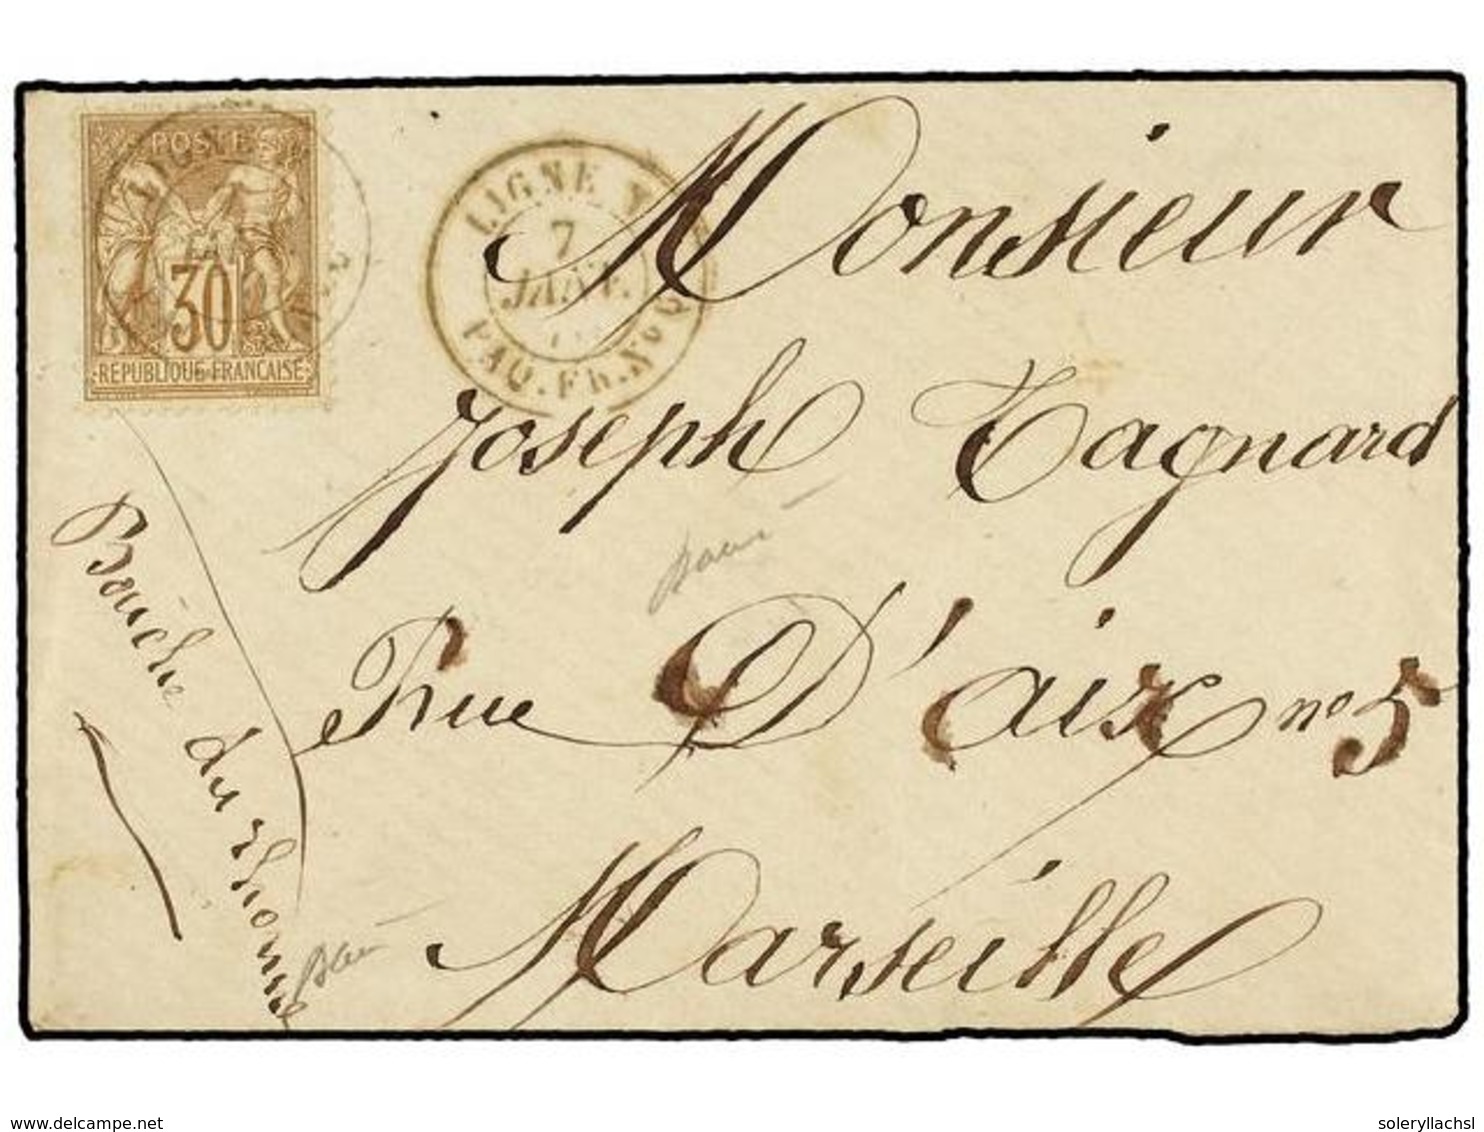 POSTES
30
REPUBLIQUE FRANCAISE
LIGNE N
7
JANV.
PAQ. FR. No
Monsieur
Joseph Tagnard
Rue D'aix no 5
Marseille
Bouche du Rhone
www.delcampe.net
soleryllachsl